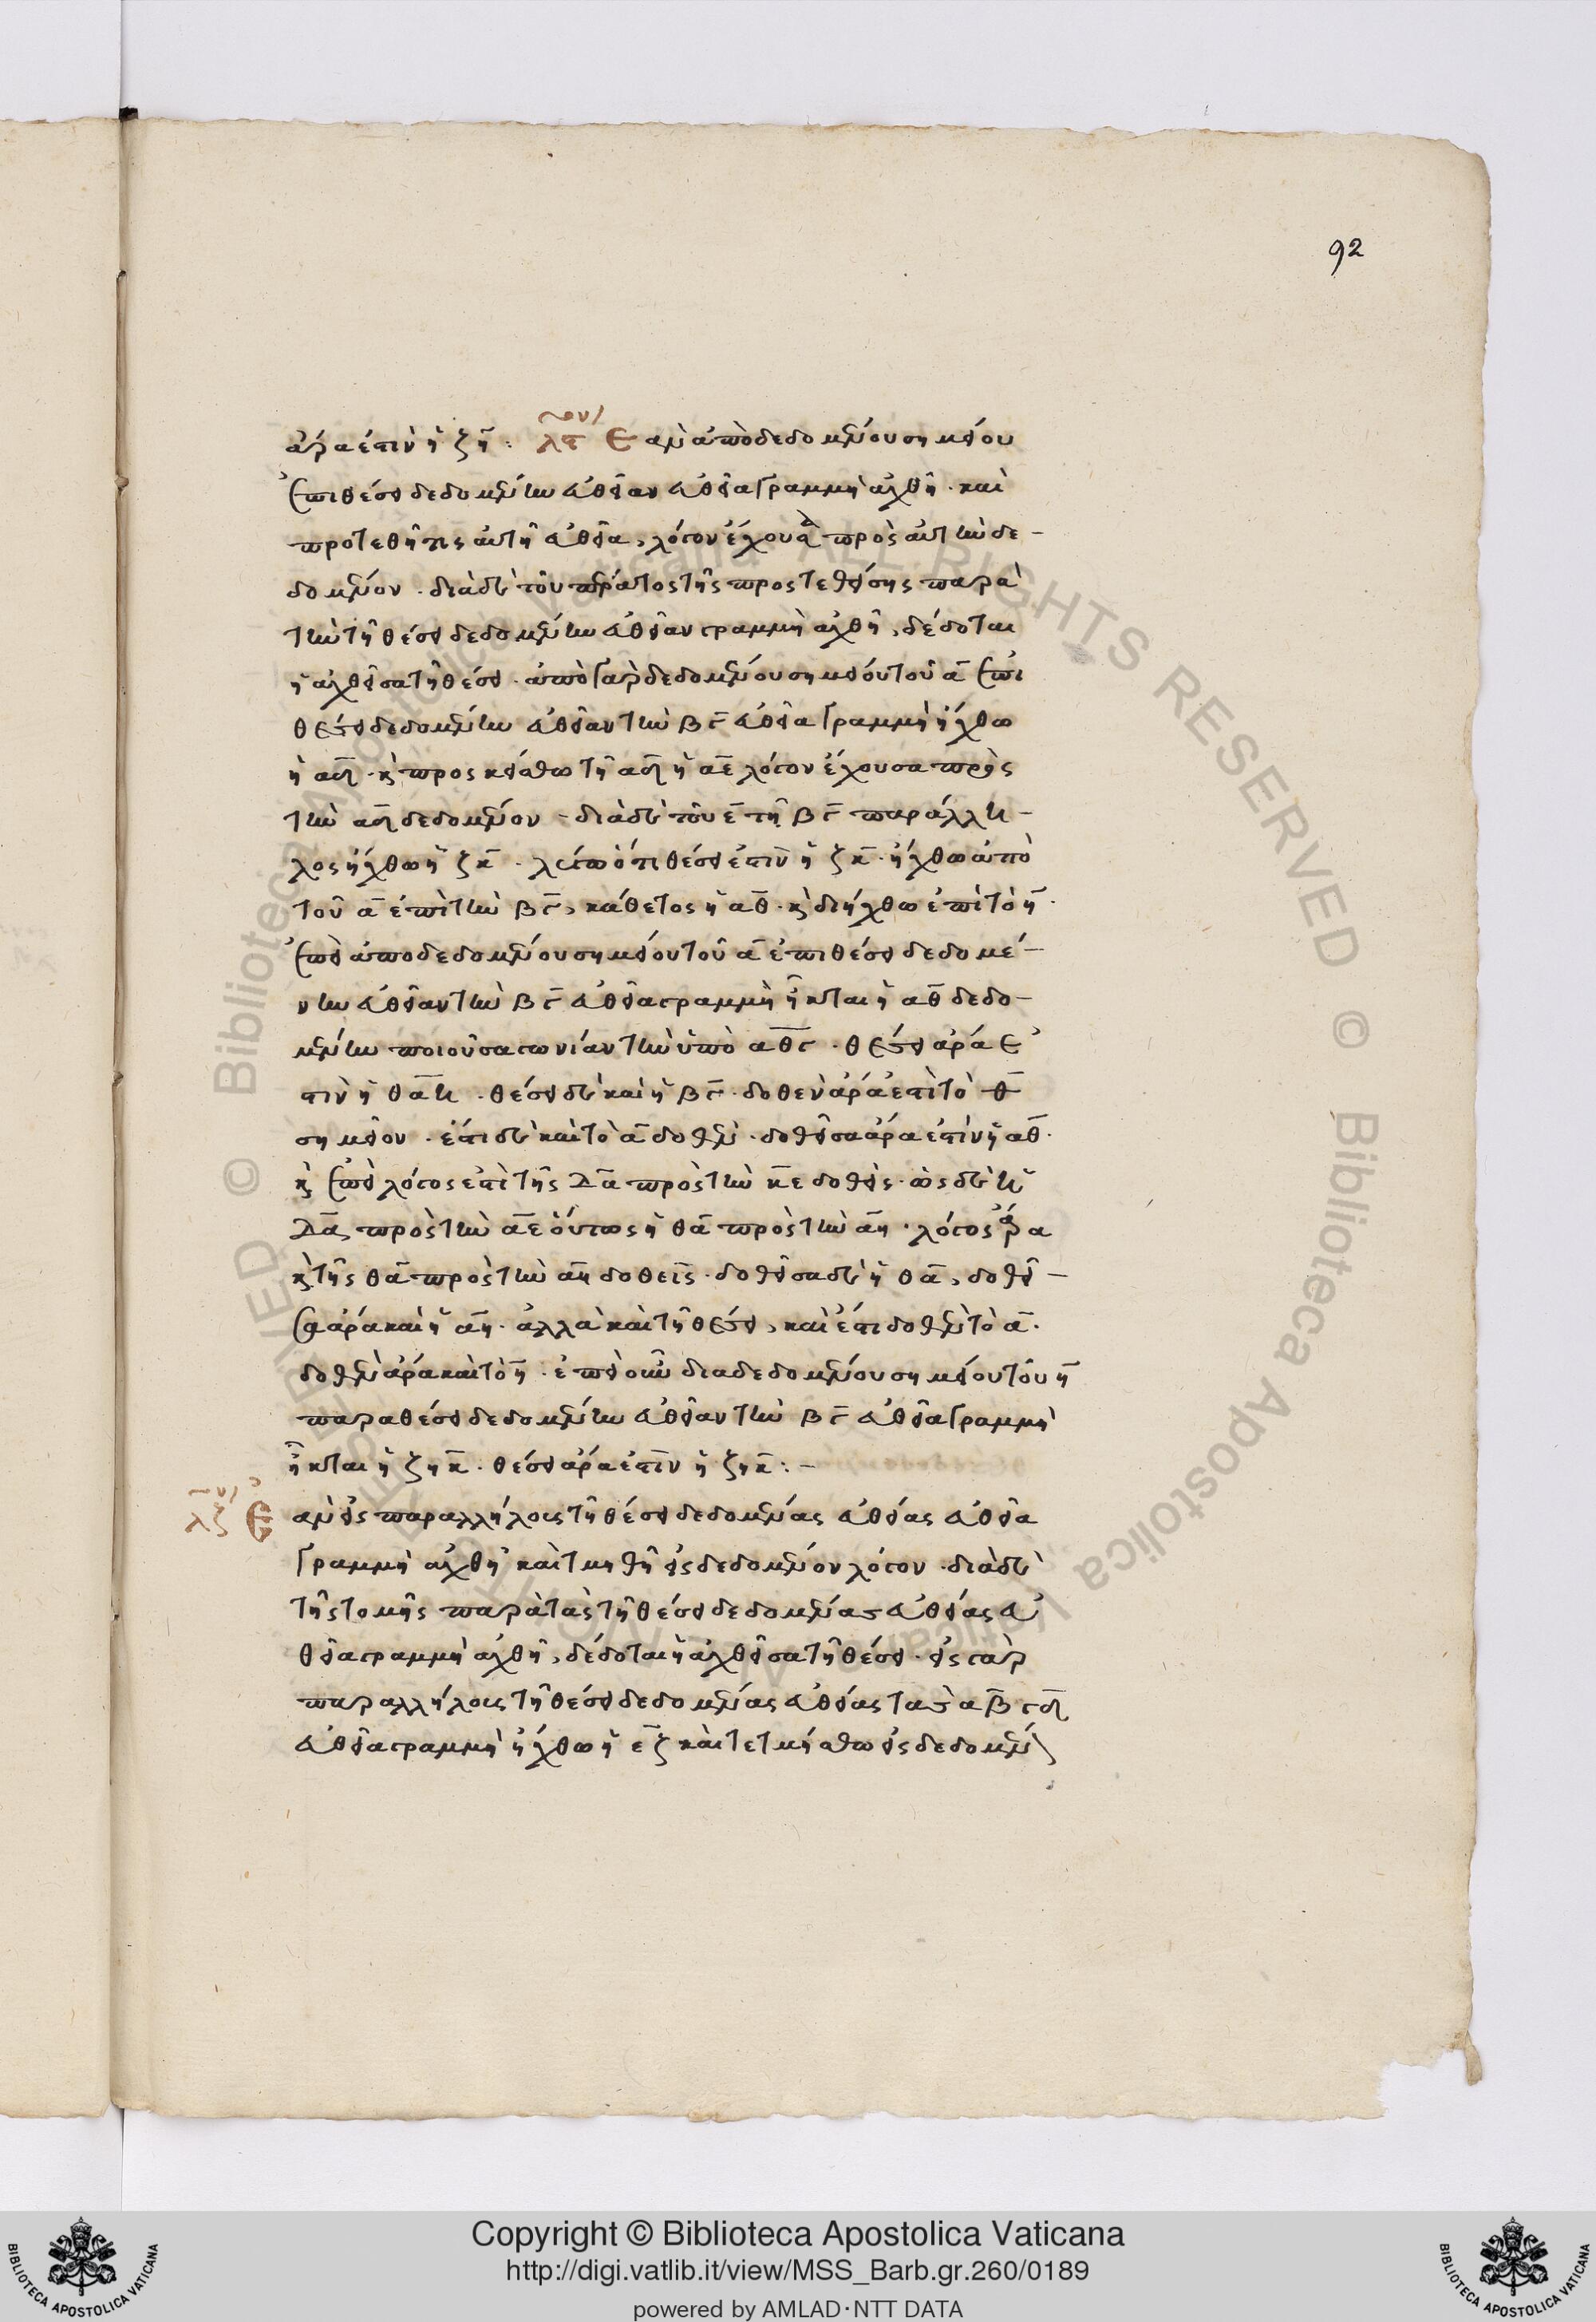 92
ἄρα ἐστιν ἡ ζη̅ : λς ον Ἐὰν ἀπὸ δεδομένου σημείου
ἐπι θέσει δεδομένην εὐθεῖαν εὐθεῖα γραμμὴ ἀχθῆ · καὶ
προστεθῆ τις αὐτῆ εὐθεῖα, λόγον ἔχουσα πρὸς αὐτὴν δε-
δομένον · διὰ δὲ τοῦ πέρατος τῆς προστεθείσης παρὰ
τὴν τῆ θέσει δεδομένην εὐθεῖαν γραμμὴ ἀχθῆ, δέδοται
ἡ ἀχθεῖσα τῆ θέσει · ἀπὸ γὰρ δεδομένου σημείου τοῦ α̅ ἐπι
θέσει δεδομένην εὐθεῖαν τὴν β̅γ̅ εὐθεῖα γραμμὴ ἤχθω
ἡ αδ̅ · κ̀ προσκείσθω τῆ αδ̅ ἡ αε̅ λόγον ἔχουσα πρὸς
τὴν αδ̅ δεδομένον · διὰ δὲ τοῦ ε̅ τῆ β̅γ̅ παράλλη-
λος ἤχθω ἡ ζκ̅ · λέγω ὅτι θέσει ἐστὶν ἡ ζκ̅ · ἤχθω ἀπὸ
τοῦ α̅ ἐπὶ τὴν β̅γ̅, κάθετος ἡ αθ̅ · κ̀ διήχθω ἐπὶ τὸ η̅ ·
ἐπεὶ ἀπο δεδομένου σημείου τοῦ α̅ ἐπι θέσει δεδομέ-
νην εὐθεῖαν τὴν β̅γ̅ εὐθεῖα γραμμὴ ἦκται ἡ αθ̅ δεδο-
μένην ποιοῦσα γωνίαν τὴν ὑπὸ αθγ̅ · θέσει ἄρα ἐ
στιν ἡ θαη̅ · θέσει δὲ καὶ ἡ β̅γ̅ · δοθὲν ἄρα ἐστὶ τὸ θ̅
σημεῖον · ἔστι δὲ καὶ τὸ α̅ δοθέν · δοθεῖσα ἄρα ἐστὶν ἡ αθ̅ ·
κ̀ ἐπεὶ λόγος ἐστὶ τῆς δα̅ πρὸς τὴν α̅ε δοθείς · ὡς δὲ ἡ
δα̅ πρὸς τὴν α̅ε οὕτως ἡ θα̅ πρὸς τὴν α̅η · λόγος ἄρα
κ̀ τῆς θα̅ πρὸς τὴν α̅η δοθείς · δοθεῖσα δὲ ἡ θα̅, δοθεῖ-
σα ἄρα καὶ ἡ α̅η · ἀλλὰ καὶ τῆ θέσει, καὶ ἔστι δοθὲν τὸ α̅ ·
δοθὲν ἄρα καὶ τὸ η̅ · ἐπεὶ οὖν δια δεδομένου σημείου τοῦ η̅
παρα θέσει δεδομένην εὐθεῖαν τὴν β̅γ̅ εὐθεῖα γραμμὴ
ἦκται ἡ ζηκ̅ · θέσει ἄρα ἐστὶν ἡ ζηκ̅ :-
λζ ον Ἐὰν εἰς παραλλήλους τῆ θέσει δεδομένας εὐθείας εὐθεῖα
γραμμὴ ἀχθῆ καὶ τμηθῆ εἰς δεδομένον λόγον · διὰ δὲ
τῆς τομῆς παρὰ τὰς τῆ θέσει δεδομένας εὐθείας εὐ
θεῖα γραμμὴ ἀχθῆ, δέδοται ἡ ἀχθεῖσα τῆ θέσει · εἰς γὰρ
παραλλήλους τῆ θέσει δεδομένας εὐθείας τὰς αβ̅ γδ̅
εὐθεῖα γραμμὴ ἤχθω ἡ εζ̅ καὶ τετμήσθω εἰς δεδομέν
Copyright © Biblioteca Apostolica Vaticana
http://digi.vatlib.it/view/MSS_Barb.gr.260/0189
powered by AMLAD·NTT DATA